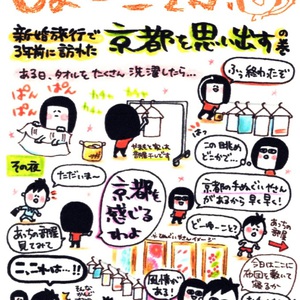 新婚旅行で
3年前に訪れた
京都を思い出すの巻
ある日、タオルをたくさん洗濯したら…
ふぅ終わったぞ
ぱん
ぱん
ぱん
ぱん
この眺め
どこかで…
その夜
ただいまー
京都を
感じる
わよ
京都の手ぬぐいやさん
があるから早く早く!
あっちの部屋
見てみて
どーゆーこと?
あっちの
部屋
こ、これは…!!
風情が
ある!
今日はここに
布団を敷いて
寝るか